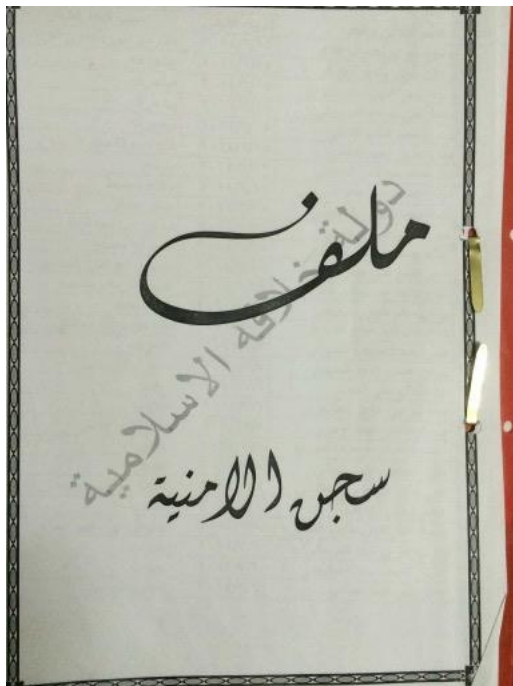 ملف
دولة خلافة الاسلامية
سجن الامنية